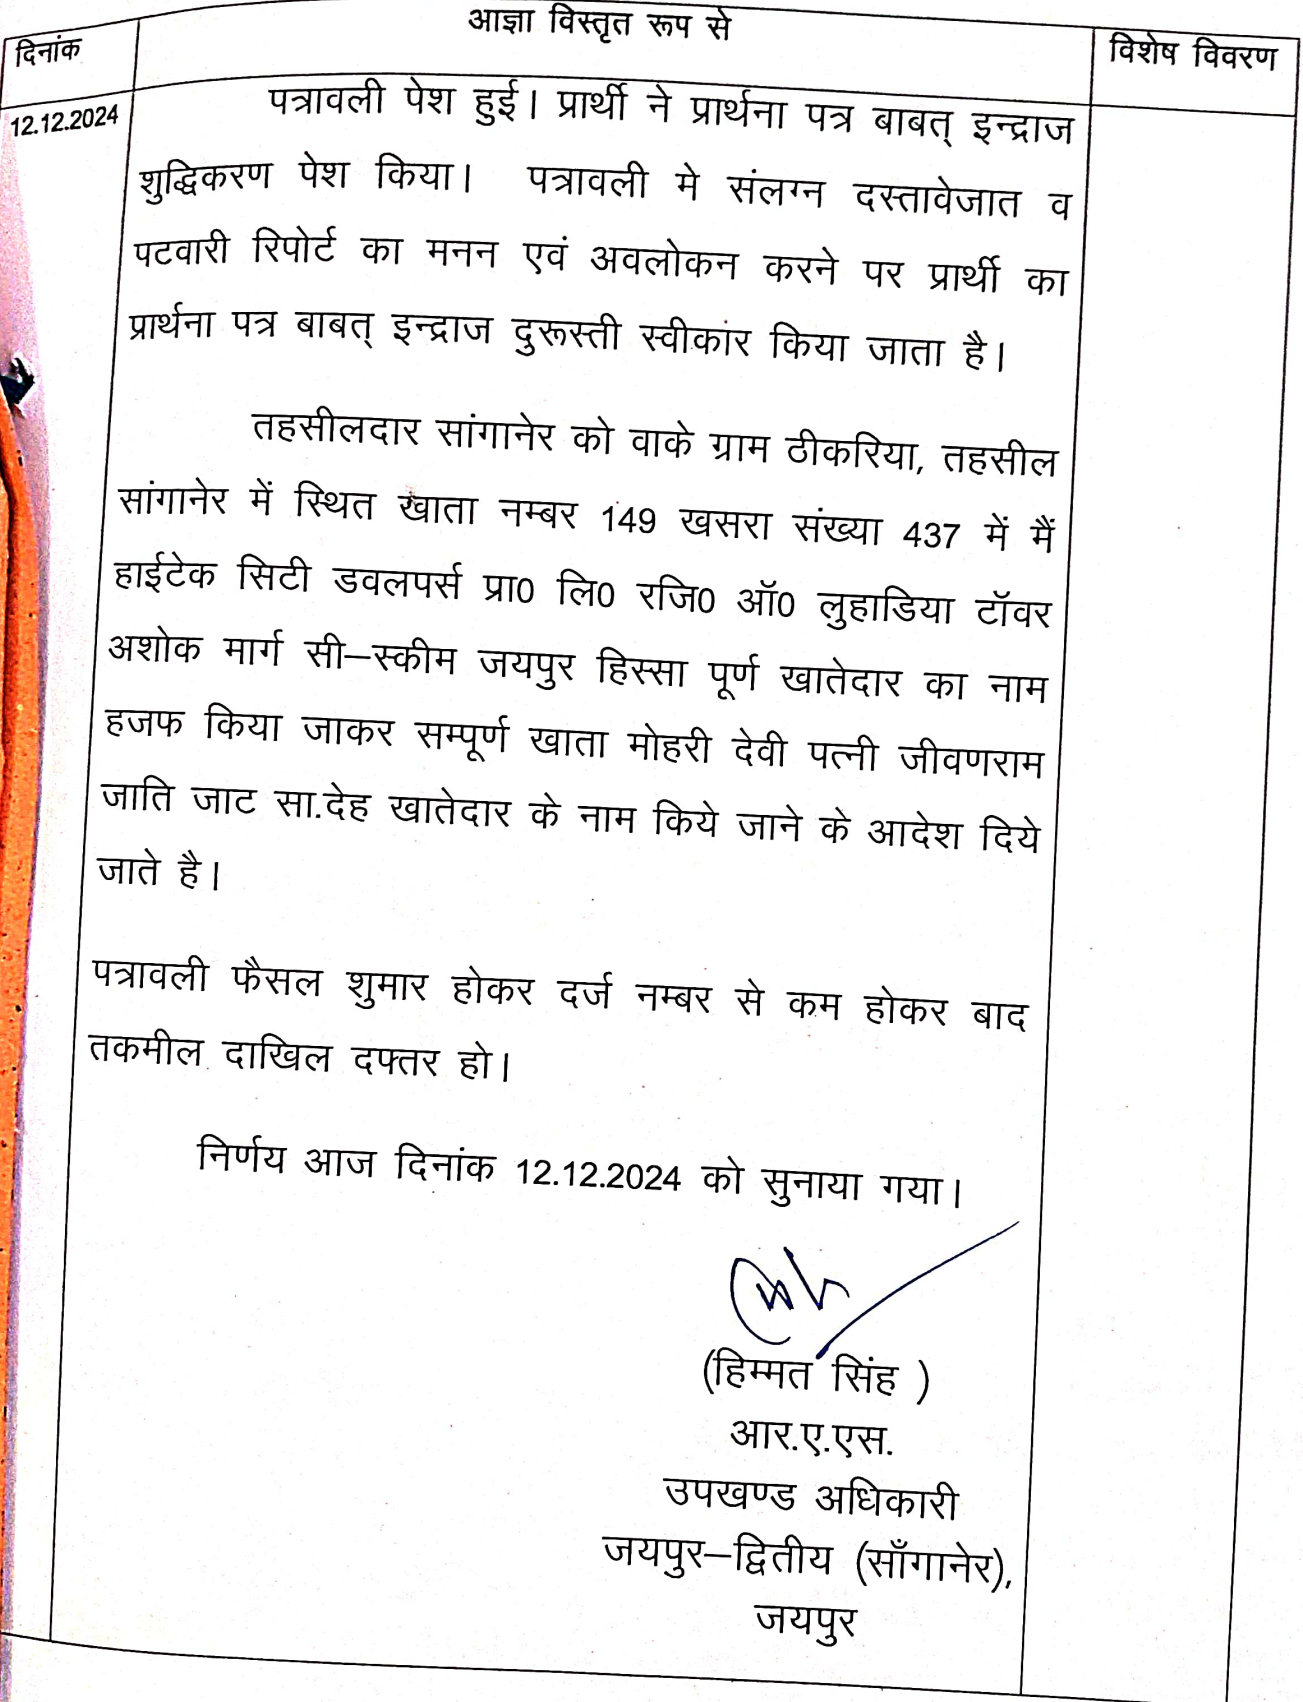 आज्ञा विस्तृत रूप से
दिनांक
विशेष विवरण
12.12.2024
पत्रावली पेश हुई। प्रार्थी ने प्रार्थना पत्र बाबत् इन्द्राज
शुद्धिकरण पेश किया। पत्रावली मे संलग्न दस्तावेजात व
पटवारी रिपोर्ट का मनन एवं अवलोकन करने पर प्रार्थी का
प्रार्थना पत्र बाबत् इन्द्राज दुरूस्ती स्वीकार किया जाता है।
तहसीलदार सांगानेर को वाके ग्राम ठीकरिया, तहसील
सांगानेर में स्थित खाता नम्बर 149 खसरा संख्या 437 में मैं
हाईटेक सिटी डवलपर्स प्रा0 लि0 रजि0 ऑ0 लुहाडिया टॉवर
अशोक मार्ग सी–स्कीम जयपुर हिस्सा पूर्ण खातेदार का नाम
हजफ किया जाकर सम्पूर्ण खाता मोहरी देवी पत्नी जीवणराम
जाति जाट सा.देह खातेदार के नाम किये जाने के आदेश दिये
जाते है।
पत्रावली फैसल शुमार होकर दर्ज नम्बर से कम होकर बाद
तकमील दाखिल दफ्तर हो।
निर्णय आज दिनांक 12.12.2024 को सुनाया गया।
(हिम्मत सिंह )
आर.ए.एस.
उपखण्ड अधिकारी
जयपुर–द्वितीय (साँगानेर),
जयपुर